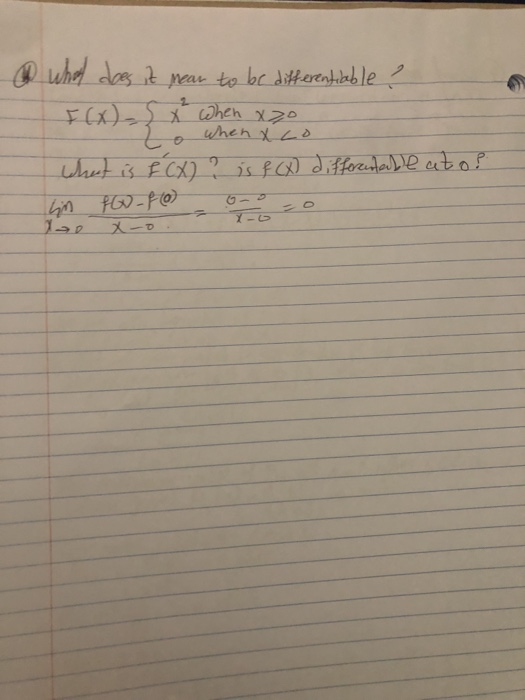 ④ what does it mean to be differentiable?
F(x) = { x² when x ≥ 0
0 when x < 0
what is F'(x)? is f(x) differentable at 0?
lim x→0 f(x)-f(0) / x-0 = 0-0 / x-0 = 0